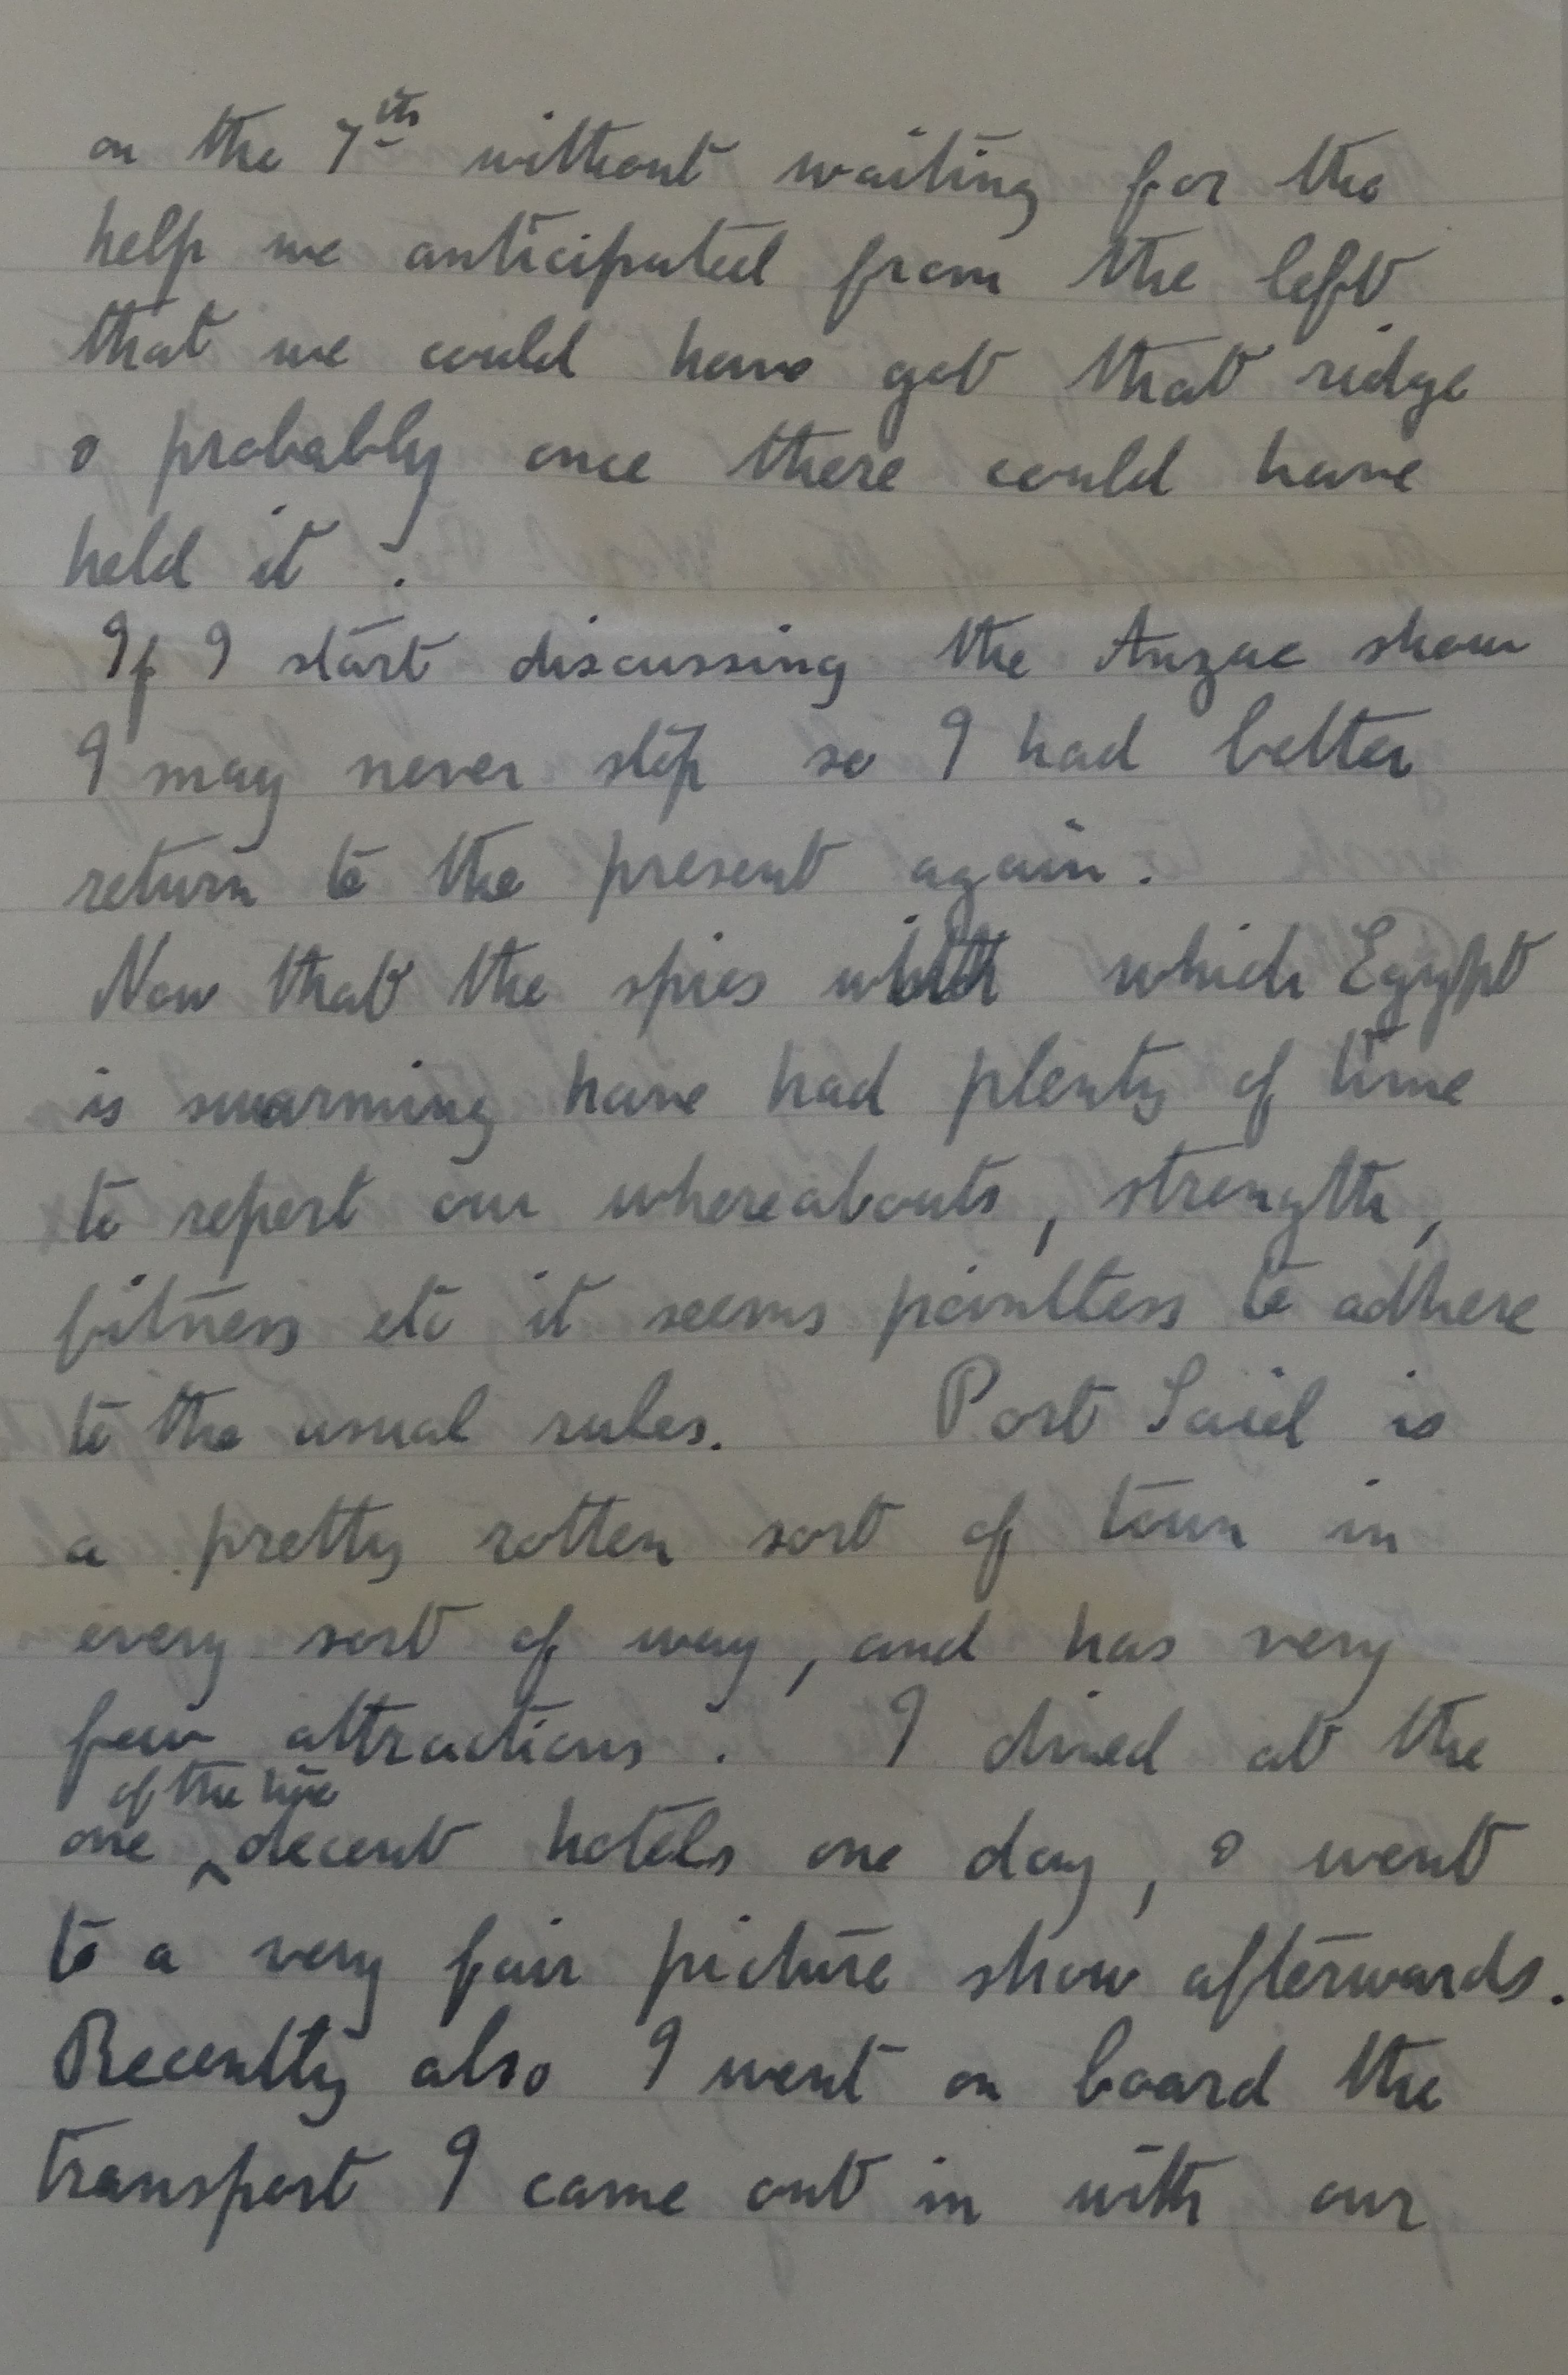 on the 7th without waiting for the
help we anticipated from the left
that we could have got that ridge
& probably once there could have
held it.
If I start discussing the Anzac show
I may never stop so I had better
return to the present again.
Now that the spies with which Egypt
is swarming have had plenty of time
to report our whereabouts, strength,
fitness etc it seems pointless to adhere
to the usual rules. Port Said is
a pretty rotten sort of town in
every sort of way, and has very
few attractions. I dined at the
one ^of the two decent hotels one day, & went
to a very fair picture show afterwards.
Recently also I went on board the
transport I came out in with our